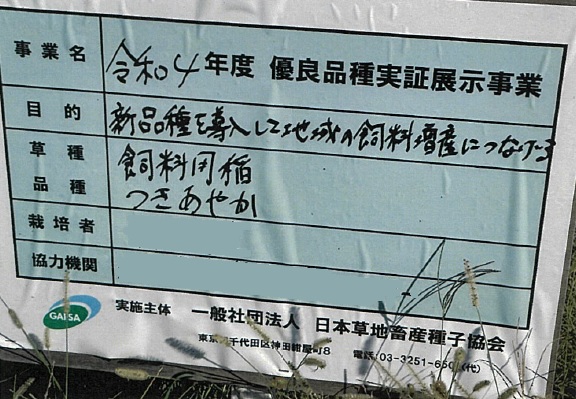 事業名 令和4年度 優良品種実証展示事業
目的 新品種を導入して地域の飼料増産につなげる
草種 飼料用稲
品種 つきあやか
栽培者
協力機関
GAFSA 実施主体 一般社団法人 日本草地畜産種子協会
千代田区神田紺屋町8 電話 03-3251-650 (代)